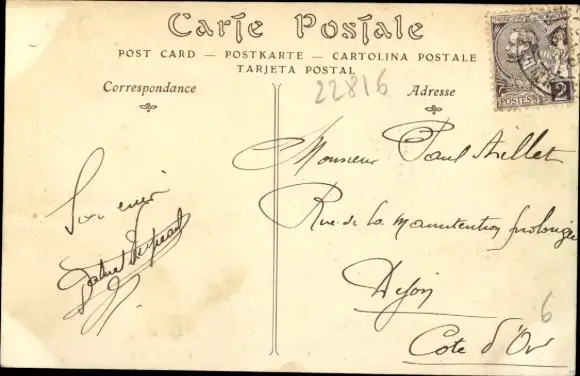 Carte Postale
POST CARD — POSTKARTE — CARTOLINA POSTALE
TARJETA POSTAL
Correspondance
Adresse
22816
POSTES
2
Souvenir
Monsieur Paul
Rue de la Manutention prolongée
Dijon
Côte d'Or
6